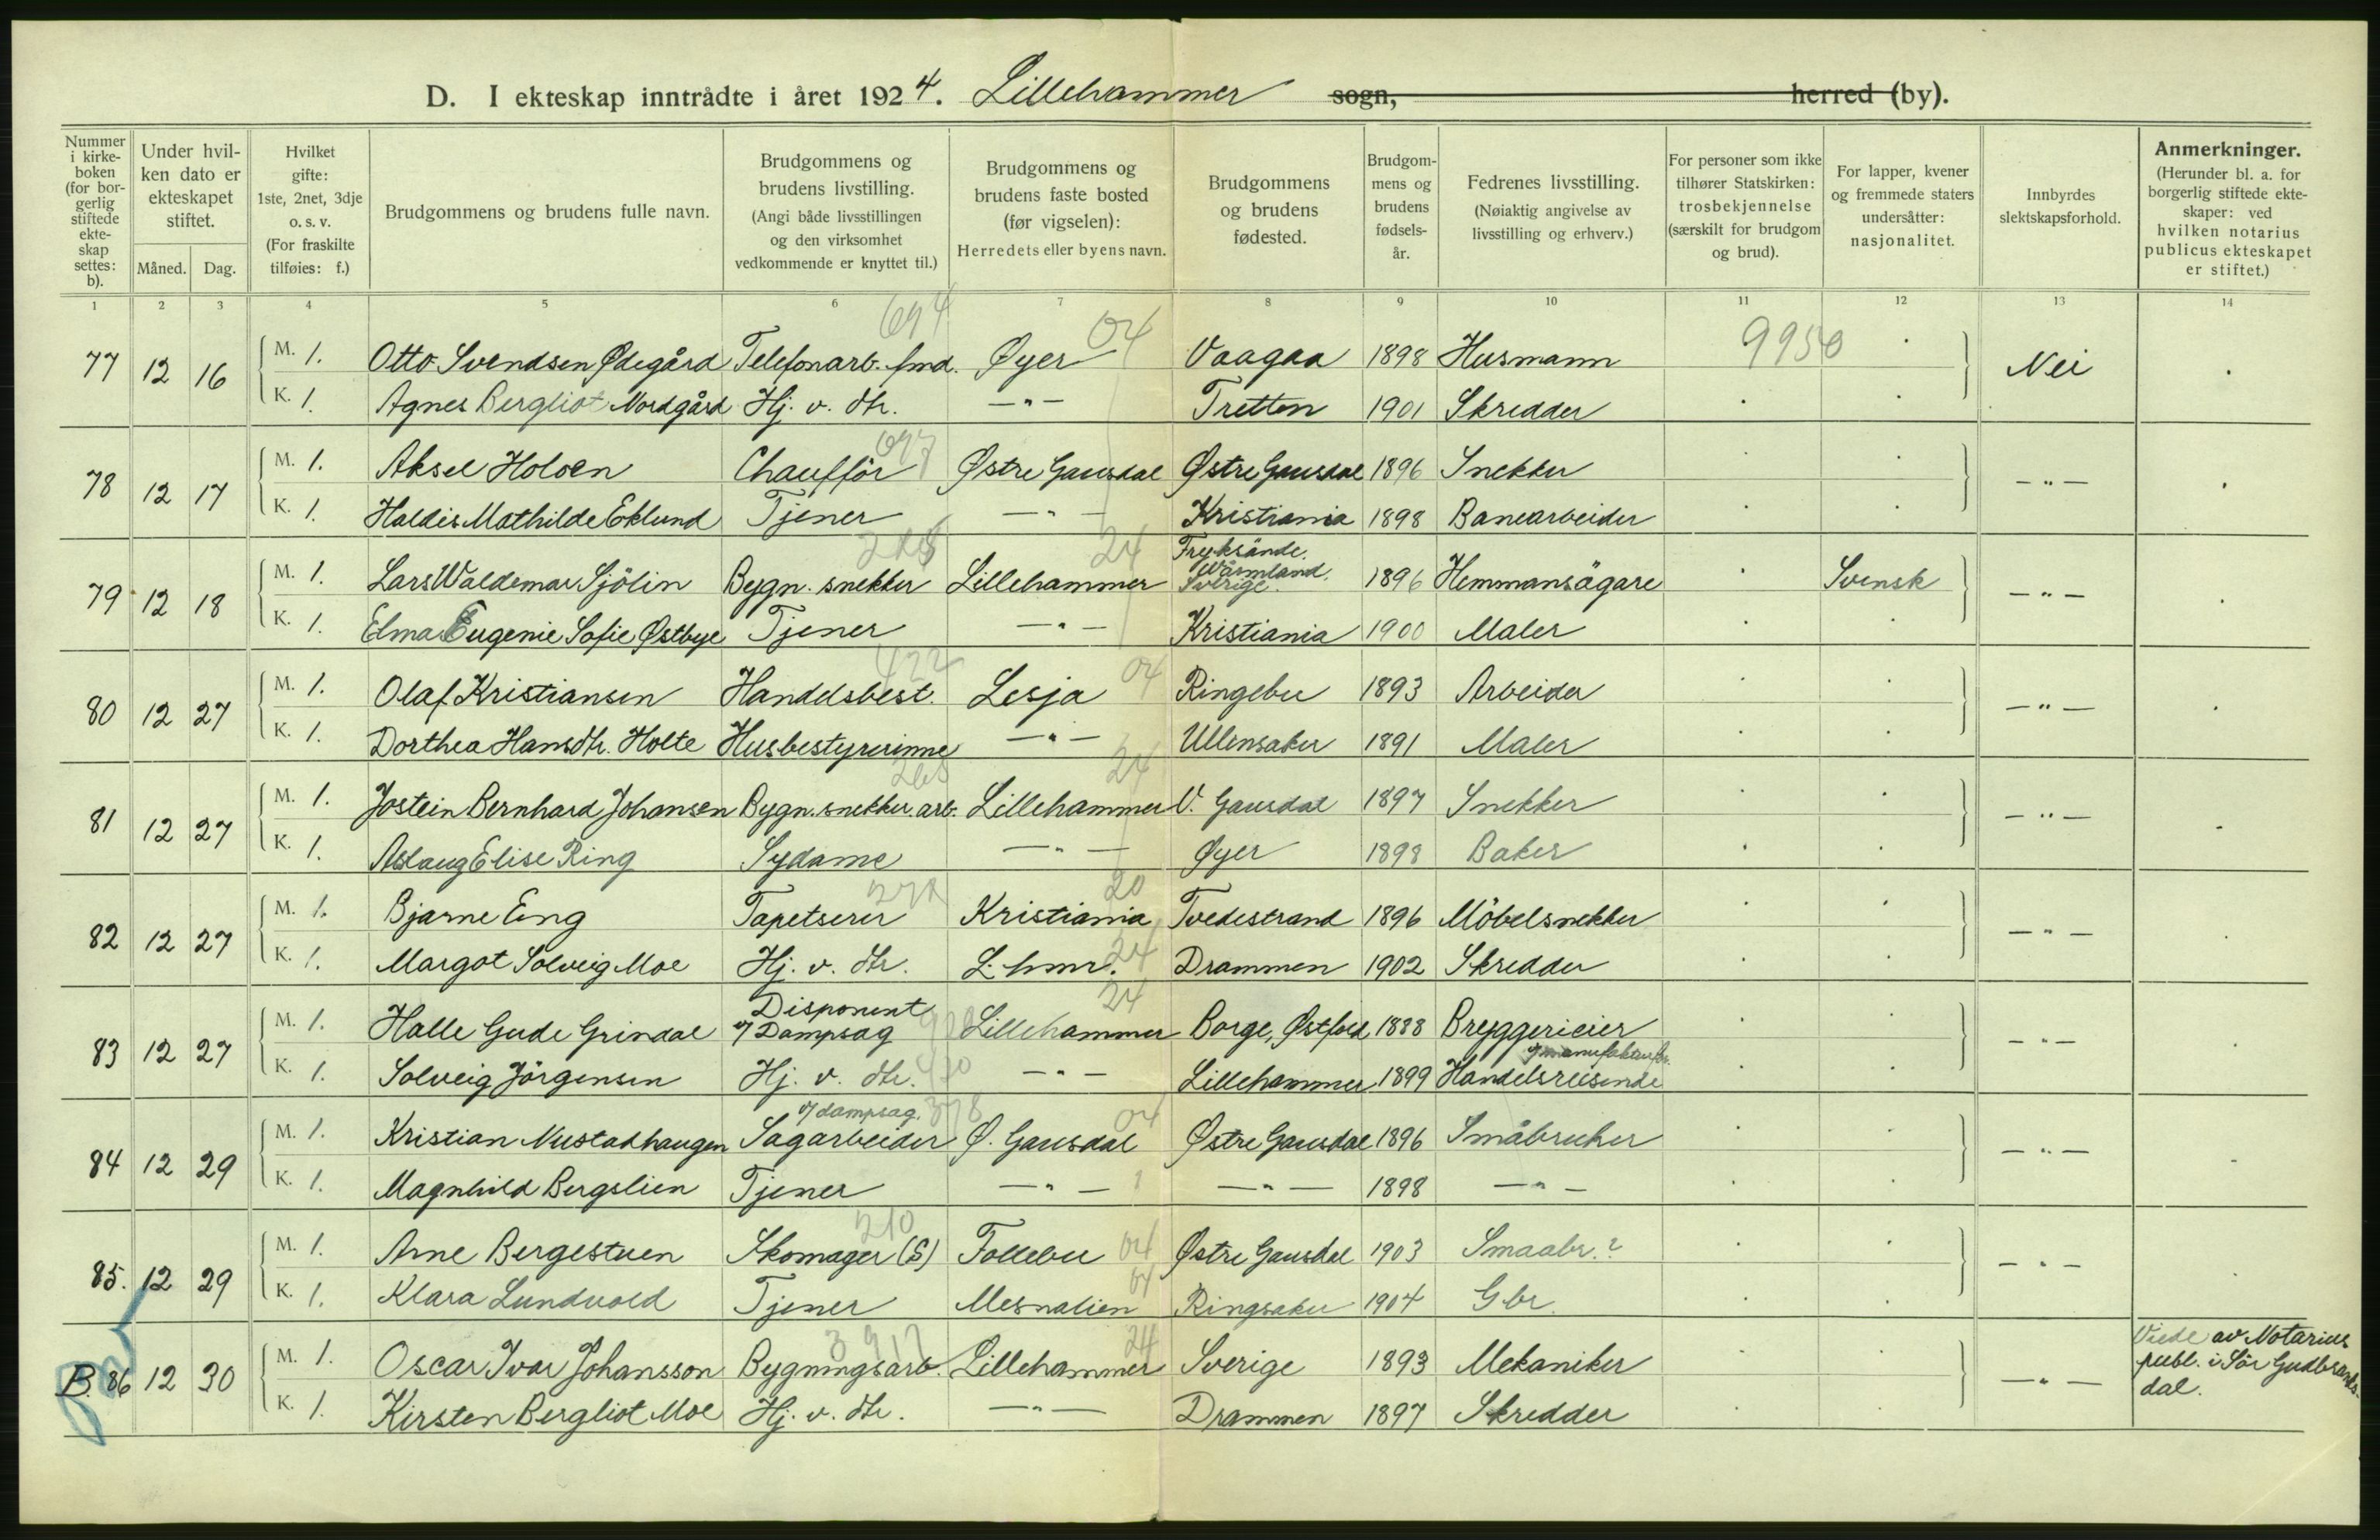 D. I ekteskap inntrådte i året 1924. Lillehammer sogn, herred (by).
Nummer i kirkeboken (for borgerlig stiftede ekteskap settes: b).
Under hvilken dato er ekteskapet stiftet.
Måned. Dag.
Hvilket gifte: 1ste, 2net, 3dje o. s. v. (For fraskilte tilføies: f.)
Brudgommens og brudens fulle navn.
Brudgommens og brudens livstilling. (Angi både livsstillingen og den virksomhet vedkommende er knyttet til.)
Brudgommens og brudens faste bosted (før vigselen): Herredets eller byens navn.
Brudgommens og brudens fødested.
Brudgommens og brudens fødselsår.
Fedrenes livsstilling. (Nøiaktig angivelse av livsstilling og erhverv.)
For personer som ikke tilhører Statskirken: trosbekjennelse (særskilt for brudgom og brud).
For lapper, kvener og fremmede staters undersåtter: nasjonalitet.
Innbyrdes slektskapsforhold.
Anmerkninger. (Herunder bl. a. for borgerlig stiftede ekteskaper: ved hvilken notarius publicus ekteskapet er stiftet.)
1 2 3 4 5 6 7 8 9 10 11 12 13 14
694 04 9950
77 12 16 M. 1. Otto Svendsen Ødegård Telefonarb. fmd. Øyer Vaagaa 1898 Husmann Nei
K. 1. Agnes Bergliot Nordgård Hj. v. dtr. —"— Tretten 1901 Skredder
697
78 12 17 M. 1. Aksel Holoen Chaufför Østre Gausdal Østre Gausdal 1896 Snekker —"—
K. 1. Haldis Mathilde Eklund Tjener —"— Kristiania 1898 Banearbeider
24 Fryksände.
Wärmland.
79 12 18 M. 1. Lars Waldemar Sjölin Bygn. snekker Lillehammer Sverige. 1896 Hemmansägare Svensk —"—
K. 1. Elma Eugenie Sofie Østbye Tjener —"— Kristiania 1900 Maler
422 04
80 12 27 M. 1. Olaf Kristiansen Handelsbest. Lesja Ringebu 1893 Arbeider —"—
K. 1. Dorthea Hansdtr. Holte Husbestyrerinne —"— Ullensaker 1891 Maler
265 24
81 12 27 M. 1. Jostein Bernhard Johansen Bygn. snekker. arb. Lillehammer V. Gausdal 1897 Snekker —"—
K. 1. Aslaug Elise Ring Sydame —"— Øyer 1898 Baker
20
82 12 27 M. 1. Bjarne Eng Tapetserer Kristiania Tvedestrand 1896 Möbelsnekker —"—
K. 1. Margot Solveig Moe Hj. v. dtr. L.hmr. 24 Drammen 1902 Skredder
Disponent 24
83 12 27 M. 1. Halle Gude Grindal v/ Dampsag Lillehammer Borge, Østfold 1888 Bryggerieier —"—
K. 1. Solveig Jörgensen Hj. v. dtr. —"— Lillehammer 1899 Handelsreisende
v/ dampsag. 378 04
84 12 29 M. 1. Kristian Nustadhaugen Sagarbeider Ø. Gausdal Østre Gausdal 1896 Småbruker —"—
K. 1. Magnhild Bergslien Tjener —"— —"— 1898 —"—
210
85. 12 29 M. 1. Arne Bergestuen Skomager (S) Follebu 04 Østre Gausdal 1903 Smaabr.? —"—
K. 1. Klara Lundvold Tjener Mesnalien 04 Ringsaker 1904 Gbr.
3917 24
B. 86 12 30 M. 1. Oscar Ivar Johansson Bygningsarb. Lillehammer Sverige 1893 Mekaniker —"— Viede av Notarius publ. i Sör Gudbrandsdal.
K. 1. Kirsten Bergliot Moe Hj. v. dtr. —"— Drammen 1897 Skredder